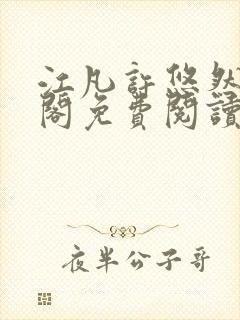 江凡許悠然
閣免費閱讀
夜半公子哥